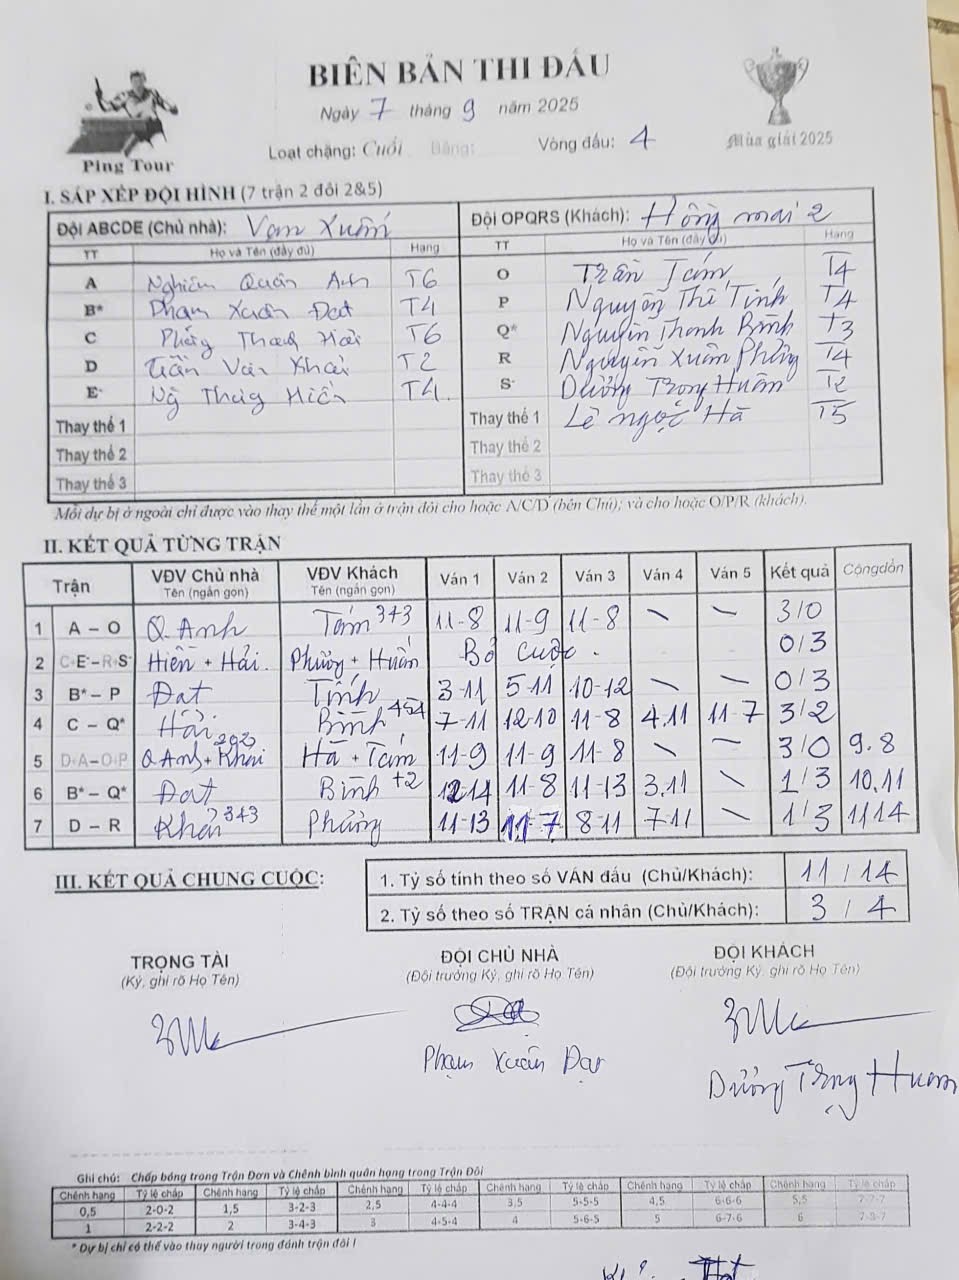 BIÊN BẢN THI ĐẤU
Ngày 7 tháng 9 năm 2025
Ping Tour
Loạt chặng: Cuối Bảng: Vòng đấu: 4
Mùa giải 2025
I. SẮP XẾP ĐỘI HÌNH (7 trận 2 đôi 2&5)
Đội ABCDE (Chủ nhà): Vạn Xuân Đội OPQRS (Khách): Hồng mai 2
TT Họ và Tên (đầy đủ) Hạng TT Họ và Tên (đầy đủ) Hạng
A Nghiêm Quân Anh T6 O Trần Tám T4
B* Phạm Xuân Đạt T4 P Nguyễn Thế Tính T4
C Thanh Hải T6 Q* Nguyễn Thanh Bình T3
D Trần Văn Khải T2 R Nguyễn Xuân Phương T4
E- Ng Hiền T4. S- Dương Trọng Huấn T2
Thay thế 1 Thay thế 1 Lê Ngọc Hà T5
Thay thế 2 Thay thế 2
Thay thế 3 Thay thế 3
Mỗi dự bị ở ngoài chỉ được vào thay thế một lần ở trận đôi cho hoặc A/C/D (bên Chủ); và cho hoặc O/P/R (khách).
II. KẾT QUẢ TỪNG TRẬN
Trận VĐV Chủ nhà Tên (ngắn gọn) VĐV Khách Tên (ngắn gọn) Ván 1 Ván 2 Ván 3 Ván 4 Ván 5 Kết quả Cộng dồn
1 A – O Q Anh Tám 343 11-8 11-9 11-8 \ – 3/0
2 C+E-–R+S- Hiền + Hải. Phương + Huấn Bỏ cuộc. 0/3
3 B* – P Đạt Tính 3-11 5-11 10-12 \ – 0/3
4 C – Q* Hải Bình 454 7-11 12-10 11-8 4.11 11-7 3/2
5 D+A–O+P Q Anh + Khải Hà + Tám 11-9 11-9 11-8 \ – 3/0 9.8
6 B* – Q* Đạt Bình +2 12 14 11-8 11-13 3.11 \ 1/3 10.11
7 D – R Khải 343 Phương 11-13 11-7 8-11 7-11 \ 1/3 11 14
III. KẾT QUẢ CHUNG CUỘC:
1. Tỷ số tính theo số VÁN đấu (Chủ/Khách): 11 / 14
2. Tỷ số theo số TRẬN cá nhân (Chủ/Khách): 3 / 4
TRỌNG TÀI ĐỘI CHỦ NHÀ ĐỘI KHÁCH
(Ký, ghi rõ Họ Tên) (Đội trưởng Ký, ghi rõ Họ Tên) (Đội trưởng Ký, ghi rõ Họ Tên)
Phạm Xuân Đạt
Dương Trọng Huấn
Ghi chú: Chấp bóng trong Trận Đơn và Chênh bình quân hạng trong Trận Đôi
Chênh hạng Tỷ lệ chấp Chênh hạng Tỷ lệ chấp Chênh hạng Tỷ lệ chấp Chênh hạng Tỷ lệ chấp Chênh hạng Tỷ lệ chấp Chênh hạng Tỷ lệ chấp
0,5 2-0-2 1,5 3-2-3 2,5 4-4-4 3,5 5-5-5 4,5 6-6-6 5,5 7-7-7
1 2-2-2 2 3-4-3 3 4-5-4 4 5-6-5 5 6-7-6 6 7-8-7
* Dự bị chỉ có thể vào thay người trong đánh trận đôi !